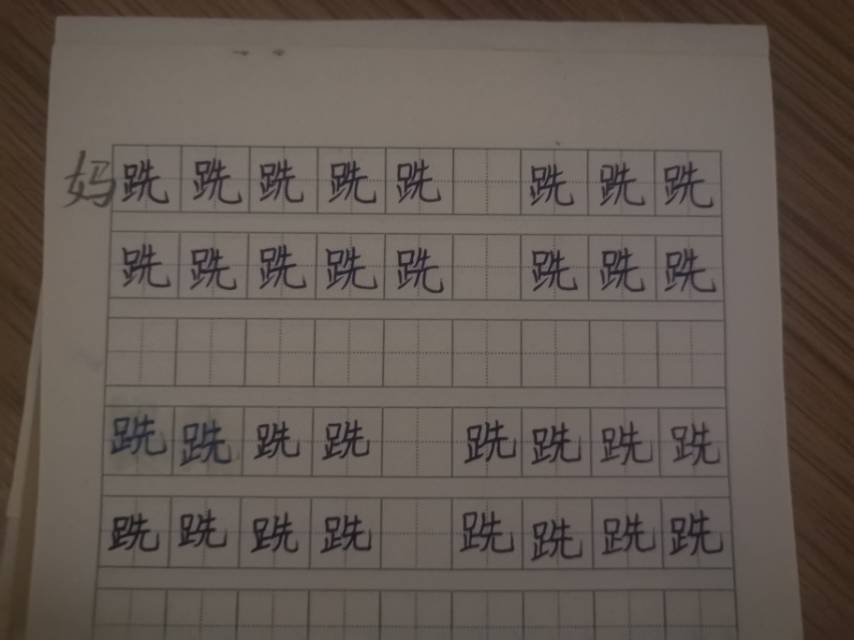 妈跣跣跣跣跣 跣跣跣
跣跣跣跣跣 跣跣跣
跣跣跣跣 跣跣跣跣
跣跣跣跣 跣跣跣跣